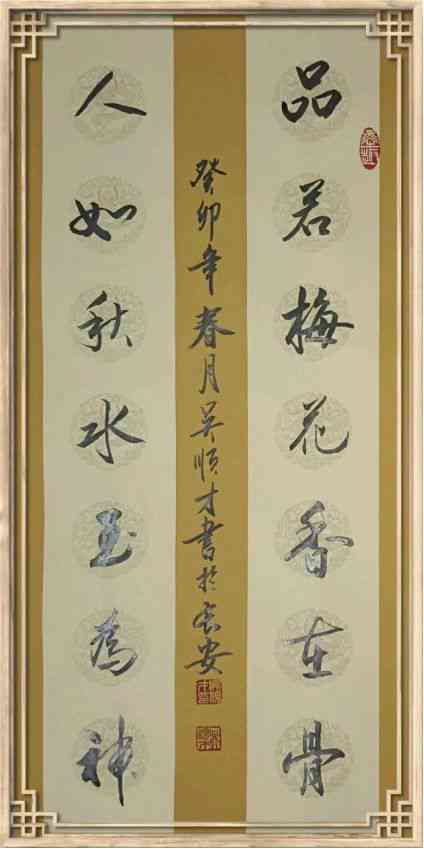 品若梅花香在骨
人如秋水玉为神
癸卯年春月吴顺才书于长安